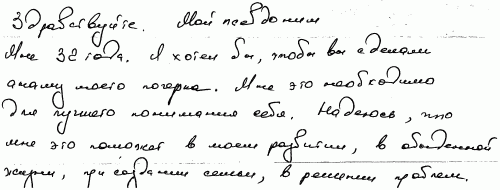 Здравствуйте. Мой псевдоним
Мне 32 года. Я хотел бы, чтобы вы сделали
анализ моего почерка. Мне это необходимо
для лучшего понимания себя. Надеюсь, что
мне это поможет в моем развитии, в обыденной
жизни, при создании семьи, в решении проблем.